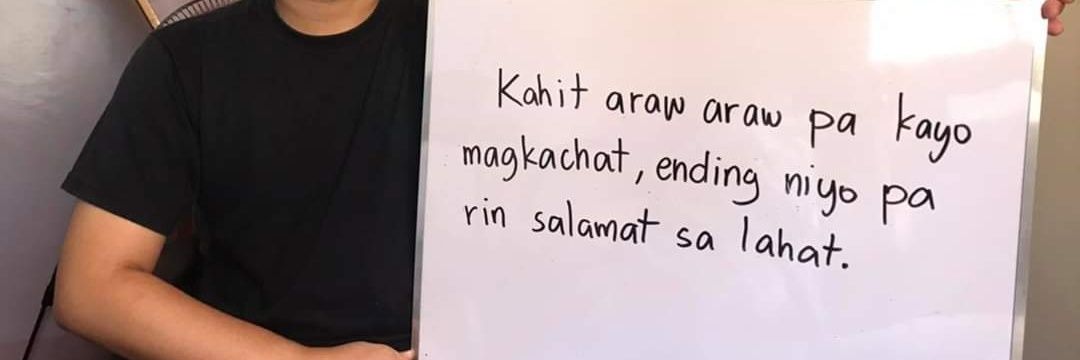 Kahit araw araw pa kayo
magkachat, ending niyo pa
rin salamat sa lahat.